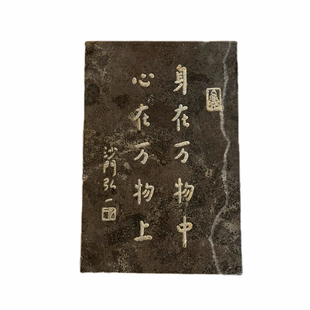 身在万物中
心在万物上
沙門弘一